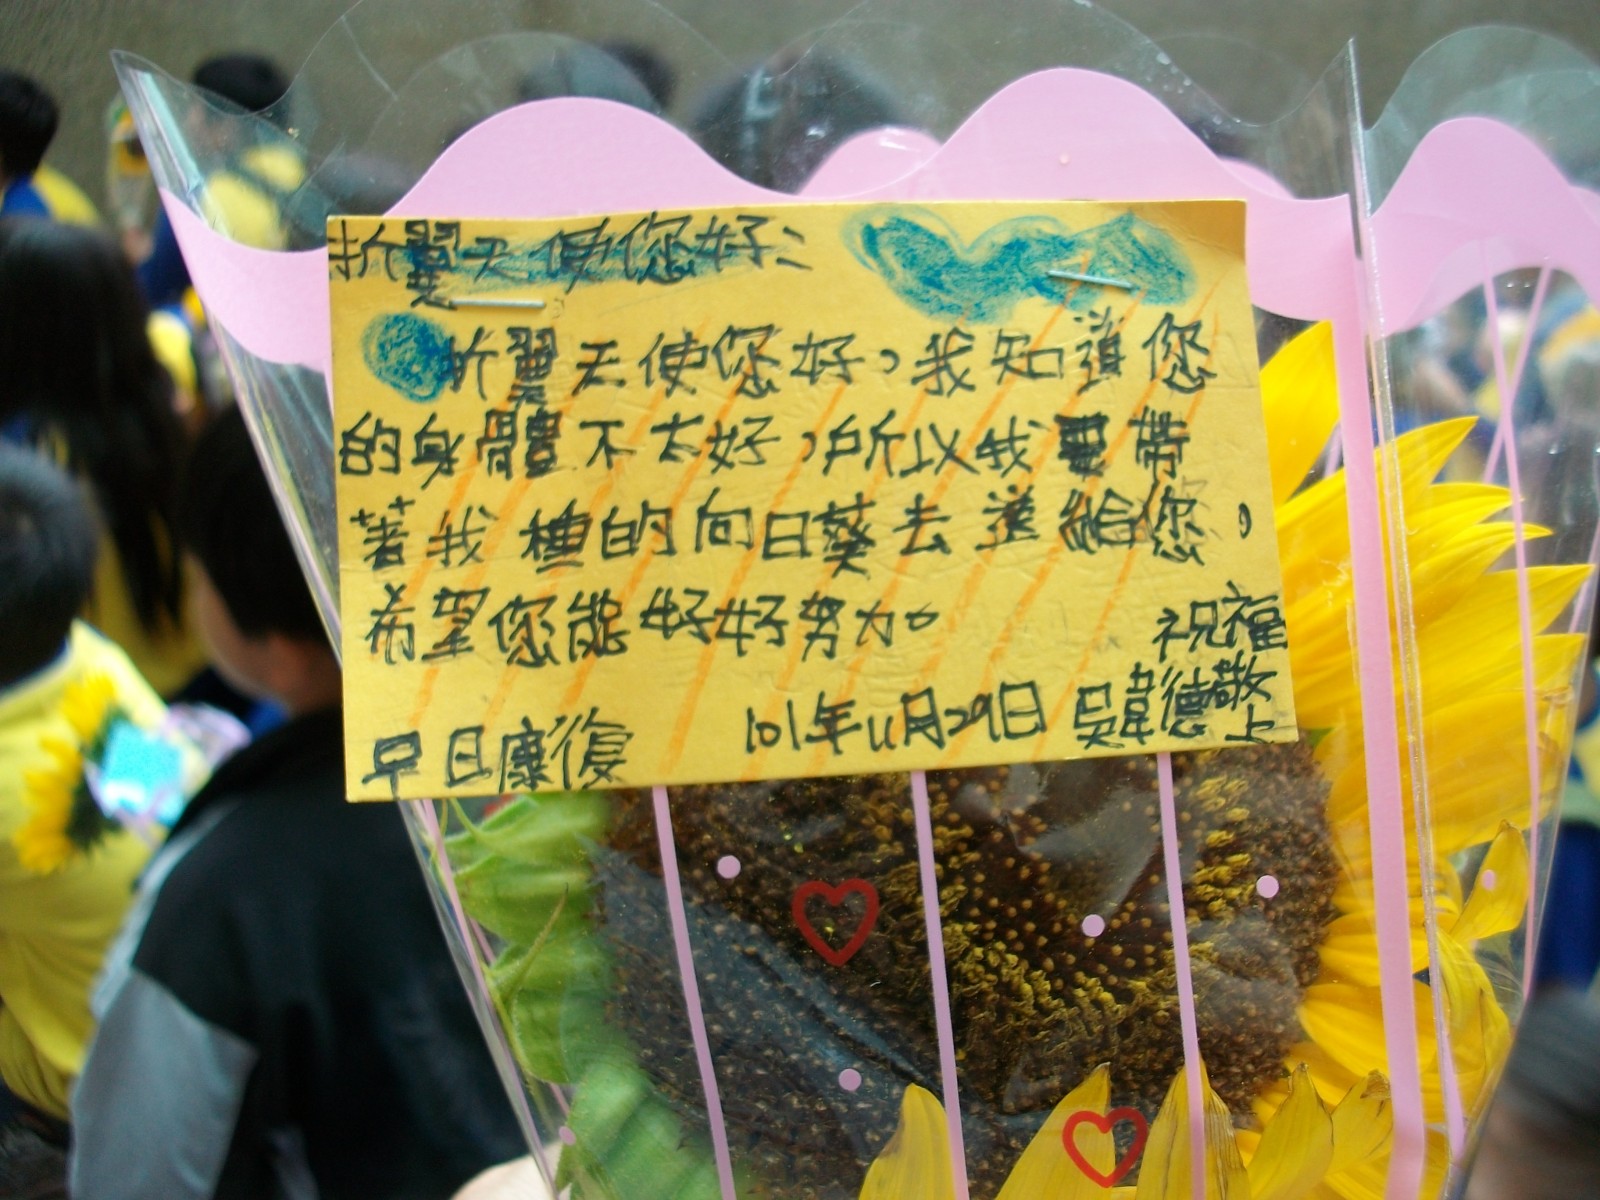 折翼天使您好:
折翼天使您好,我知道您
的身體不太好,所以我要帶
著我種的向日葵去送給您,
希望您能好好努力加
祝福
早日康復 101年11月29日 吳韋德敬上